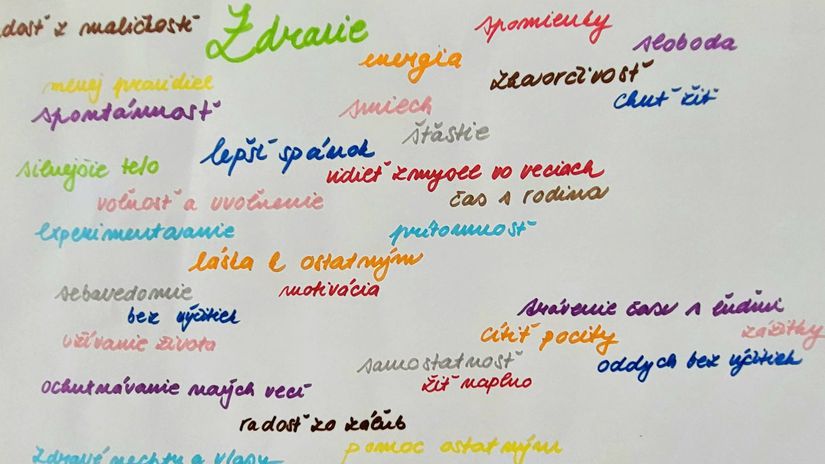 radosť z maličkostí
Zdravie
spomienky
sloboda
energia
menej pravidiel
tvorčivosť
chuť žiť
spontánnosť
smiech
šťastie
lepší spánok
silnejšie telo
vidieť zmysel vo veciach
voľnosť a uvoľnenie
čas s rodina
experimentovanie
prítomnosť
láska k ostatným
sebavedomie
motivácia
trávenie času s ľuďmi
bez výčitiek
užívanie života
cítiť pocity
zážitky
samostatnosť
oddych bez výčitiek
ochutnávanie nových vecí
žiť naplno
radosť zo záľub
pomoc ostatným
Zdravé nechty a vlasy